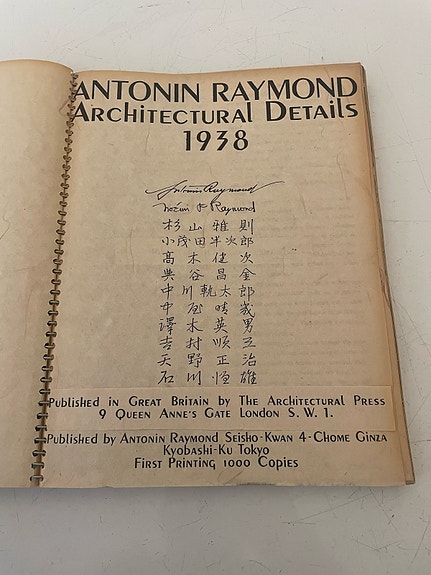 ANTONIN RAYMOND
ARCHITECTURAL DETAILS
1938
Antonin Raymond
Noémi P Raymond
杉山雅則
小茂田半次郎
高木健次
奥谷昌金
中川軌太郎
中屋晴歳
澤木英男
吉村順三
天野正治
石川恒雄
PUBLISHED IN GREAT BRITAIN BY THE ARCHITECTURAL PRESS
9 QUEEN ANNE'S GATE LONDON S. W. 1.
PUBLISHED BY ANTONIN RAYMOND SEISHO-KWAN 4-CHOME GINZA
KYOBASHI-KU TOKYO
FIRST PRINTING 1000 COPIES